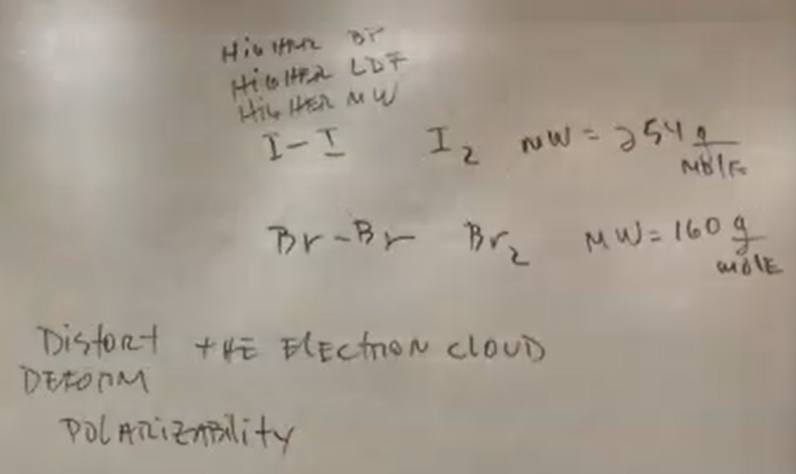 HIGHER BP
HIGHER LDF
HIGHER MW
I-I I2 MW = 254 g/mole
Br-Br Br2 MW = 160 g/mole
Distort the Electron cloud
DEFORM
Polarizability